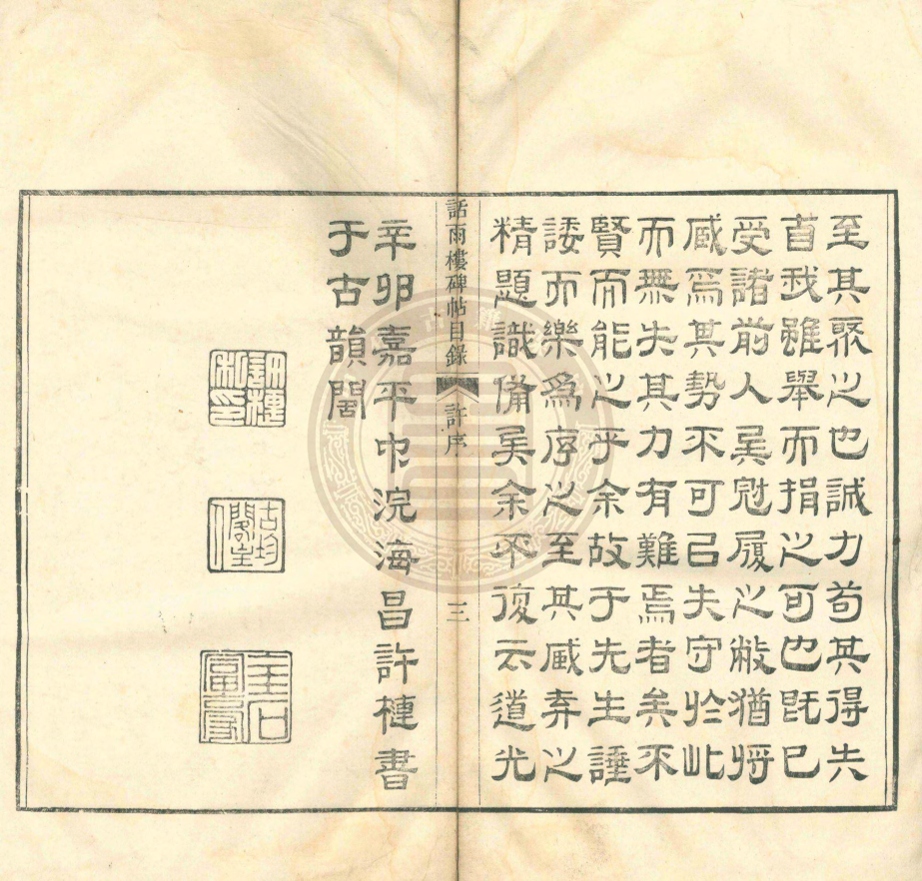 至其聚之也誠力苟其得失
自我雖舉而捐之可也既已
受諸前人矣冠履之敝猶將
臧焉其勢不可已夫守於此
而無失其力有難焉者矣不
賢而能之乎余故于先生諈
諉而樂爲序之至其臧弆之
精題識備矣余不復云道光
話雨樓碑帖目錄
許序
三
辛卯嘉平中浣海昌許槤書
于古韻閣
許槤
私印